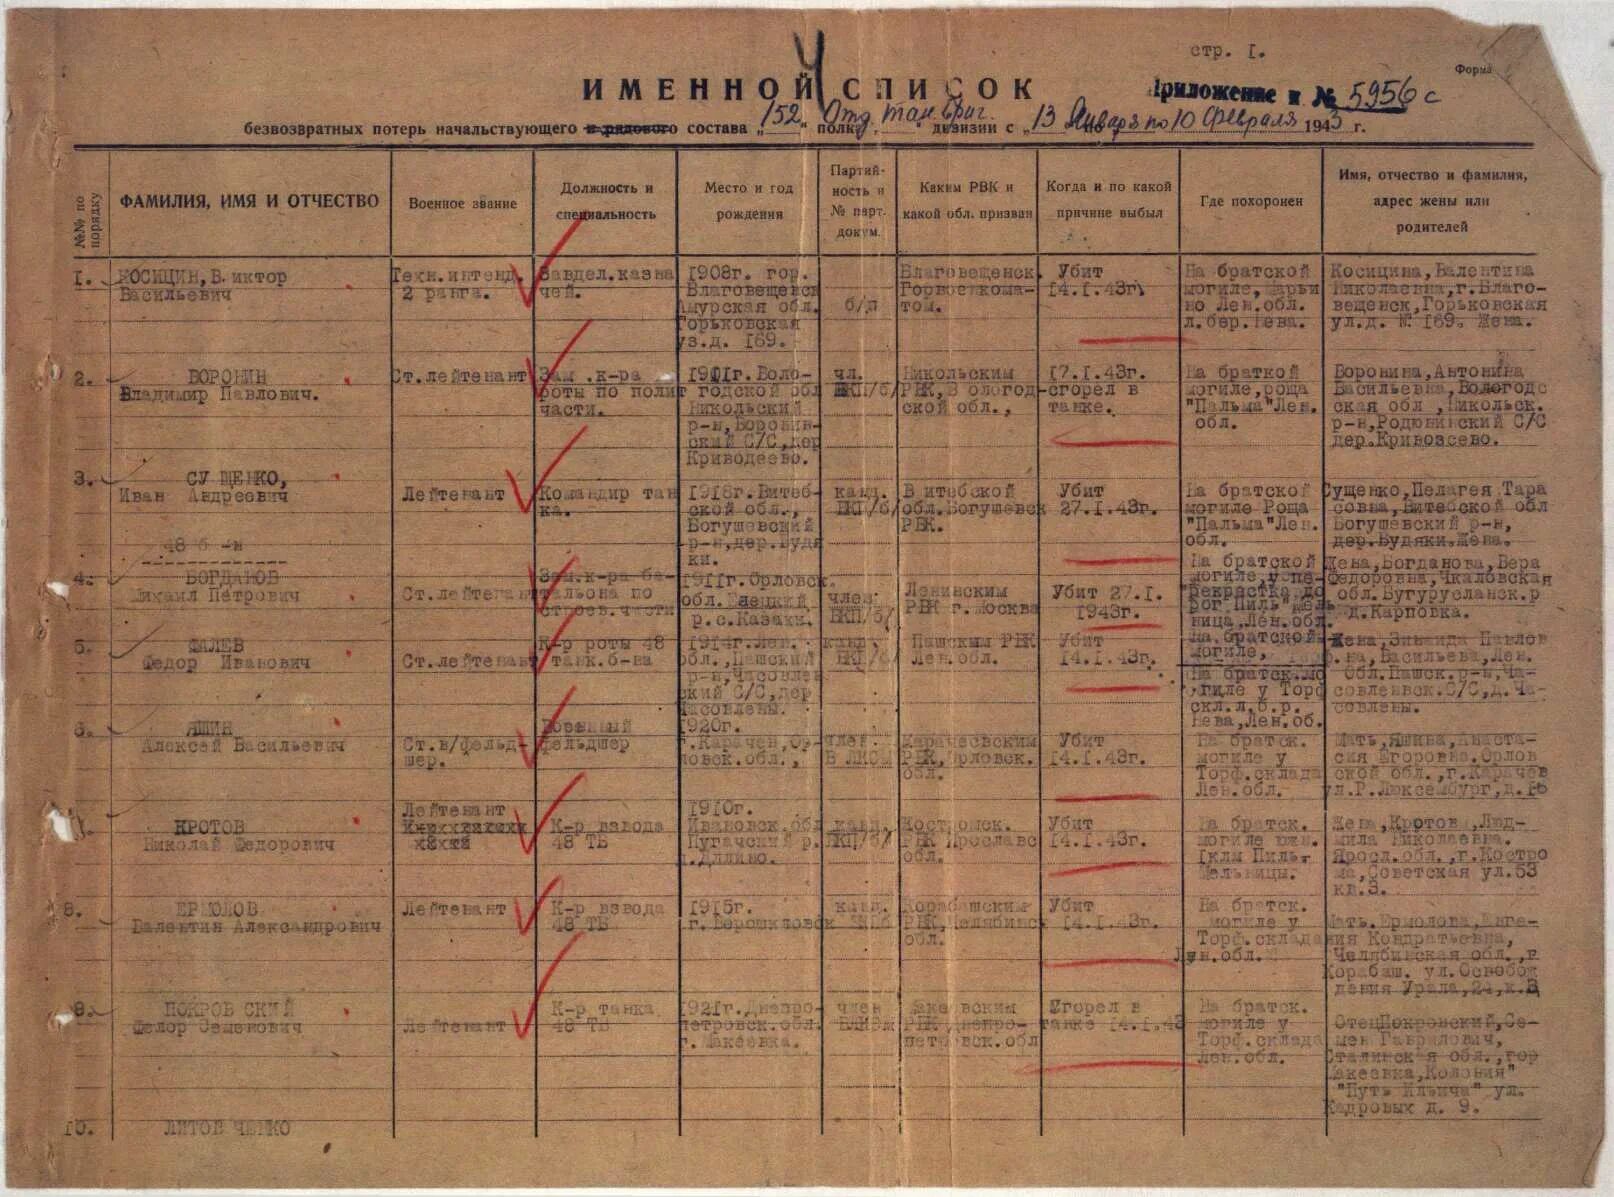 стр. I.
Форма
ИМЕННОЙ СПИСОК
Приложение к № 5956с
безвозвратных потерь начальствующего и рядового состава „152“ полка „Отд. тан. бриг.“ дивизии с „13 Января по 10 Февраля 1943 г.
№№ по порядку
ФАМИЛИЯ, ИМЯ И ОТЧЕСТВО
Военное звание
Должность и специальность
Место и год рождения
Партийность и № парт. докум.
Каким РВК и какой обл. призван
Когда и по какой причине выбыл
Где похоронен
Имя, отчество и фамилия, адрес жены или родителей
1.
КОСИЦИН,В.иктор
Васильевич
Техн.интенд.
2 ранга.
Завдел.казна
чей.
1908г. гор.
Благовещенск
Амурская обл.
Горьковская
уз.д. 169.
б/п
Благовещенск.
Горвоенкома-
том.
Убит
14.I.43г.
На братской
могиле, Марьи
но Лен.обл.
л.бер.Нева.
Косицина,Валентина
Николаевна,г.Благо-
вещенск,Горьковская
ул.д. № 169. Жена.
2.
ВОРОНИН
Владимир Павлович.
Ст.лейтенант
Зам .к-ра
роты по полит
части.
1901г.Воло-
годской обл
Никольский
р-н,Воронин-
ский С/С,дер
Криводеево.
чл.
ВКП/б/
Никольским
РВК,В ологод-
ской обл.,
17.I.43г.
сгорел в
танке.
На браткой
могиле,роща
"Пальма"Лен.
обл.
Воронина,Антонина
Васильевна,Вологодс
ская обл ,Никольск.
р-н,Родюнинский С/С
дер.Кривовсево.
3.
СУ ЩЕНКО,
Иван Андреевич
Лейтенант
Командир тан
ка.
1918г.Витеб-
ской обл.,
Богушевский
р-н,дер.Будя
ки.
канд.
ВКП/б/
В итебской
обл.Богушевск
РВК.
Убит
27.I.43г.
На братской
могиле Роща
"Пальма"Лен.
обл.
Сущенко,Пелагея Тара
совна,Витебской обл
Богушевский р-н,
дер.Будяки.Жена.
48 б -н
4.
БОГДАНОВ
Михаил Петрович
Ст.лейтенант
Зам.к-ра ба-
тальона по
строев.части
1911г.Орловск.
обл. Елецкий
р.с.Казаки.
член
ВКП/б/
Ленинским
РВК г.Москва
Убит 27.I.
1943г.
На братской
могиле,у пе-
рекрестка до
рог.Пиль"мель
ница,Лен.обл.
Жена,Богданова,Вера
Федоровна,Чкаловская
обл.Бугурусланск.р
д.Карповка.
5.
ФАЛЕВ
Федор Иванович
Ст.лейтенант
К-р роты 48
танк.б-на
1914г.Лен.
обл.,Пашский
р-н,Часовлен
ский С/С,дер
Часовлены.
канд.
ВКП/б/
Пашским РВК
Лен.обл.
Убит
14.I.43г.
На братской
могиле,
На братск.мо
гиле у Торф
скл.л.б.р.
Нева,Лен.об.
Жена,Зинаида Павлов
на,Васильева,Лен.
Обл.Пашск.р-н,Ча-
совленвск.С/С,д.Ча-
совлены.
6.
ЯШИН
Алексей Васильевич
Ст.в/фельд-
шер.
Военный
фельдшер
1920г.
г.Карачев,Ор-
ловск.обл.,
член
ВЛКСМ
Карачевским
РВК,Орловск.
обл.
Убит
14.I.43г.
На братск.
могиле у
Торф.склада
Лен.обл.
Мать,Яшина,Анаста-
сия Егоровна.Орлов
ской обл.,г.Карачев
ул.Р.Люксембург,д.
7.
КРОТОВ
Николай Федорович
Лейтенант
К-р взвода
48 ТБ
1910г.
Ивановск.обл
Пугачский р.
канд.
ВКП/б/
Костромск.
РВК Ярославс
обл.
Убит
14.I.43г.
На братск.
могиле южн.
1клм Пиль-
Мельницы.
Жена,Кротова,Люд-
мила Николаевна.
Яросл.обл.,г.Костро
ма,Советская ул.53
кв.3.
8.
ЕРМОЛОВ
Валентин Александрович
Лейтенант
К-р взвода
48 ТБ
1915г.
г.Ворошиловск
канд.
ВКПб
Корабашским
РВК,Челябинск
обл.
Убит
14.I.43г.
На братск.
могиле у
Торф.склада
Лен.обл.
Мать.Ермолова,Евге-
ния Кондратьевна,
Челябинская обл.,г
Корабаш. ул.Освобож
дения Урала,24,к.
9.
ПОКРОВ СКИЙ
Федор Семенович
Лейтенант
К-р танка
48 ТБ
1921г.Днепро-
петровск.обл.
г.Макеевка.
член
ВЛКСМ
Макеевским
РВК Днепро-
петровск.обл
Сгорел в
танке 14.I.43
На братск.
могиле у
Торф.склада
Лен.обл.
ОтецПокровский,Се-
мен Гаврилович,
Сталинская обл.,гор
Макеевка,Колония"
"Путь Ильича" ул.
Кадровых д. 9.
10.
ЛИТОВ ЧЕНКО